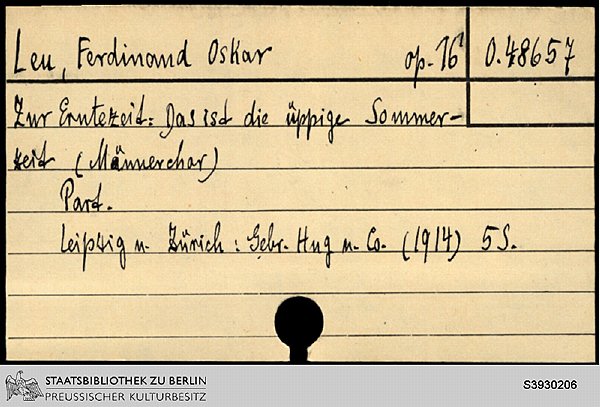 Leu, Ferdinand Oskar op. 16 O. 48657
Zur Erntezeit: Das ist die üppige Sommer-
zeit (Männerchor)
Part.
Leipzig u. Zürich: Gebr. Hug u. Co. (1914) 5 S.
STAATSBIBLIOTHEK ZU BERLIN
PREUSSISCHER KULTURBESITZ
S3930206